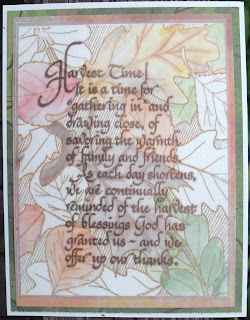 Harvest Time!
It is a time for
gathering in and
drawing close, of
savoring the warmth
of family and friends.
As each day shortens,
we are continually
reminded of the harvest
of blessings God has
granted us ~ and we
offer up our thanks.